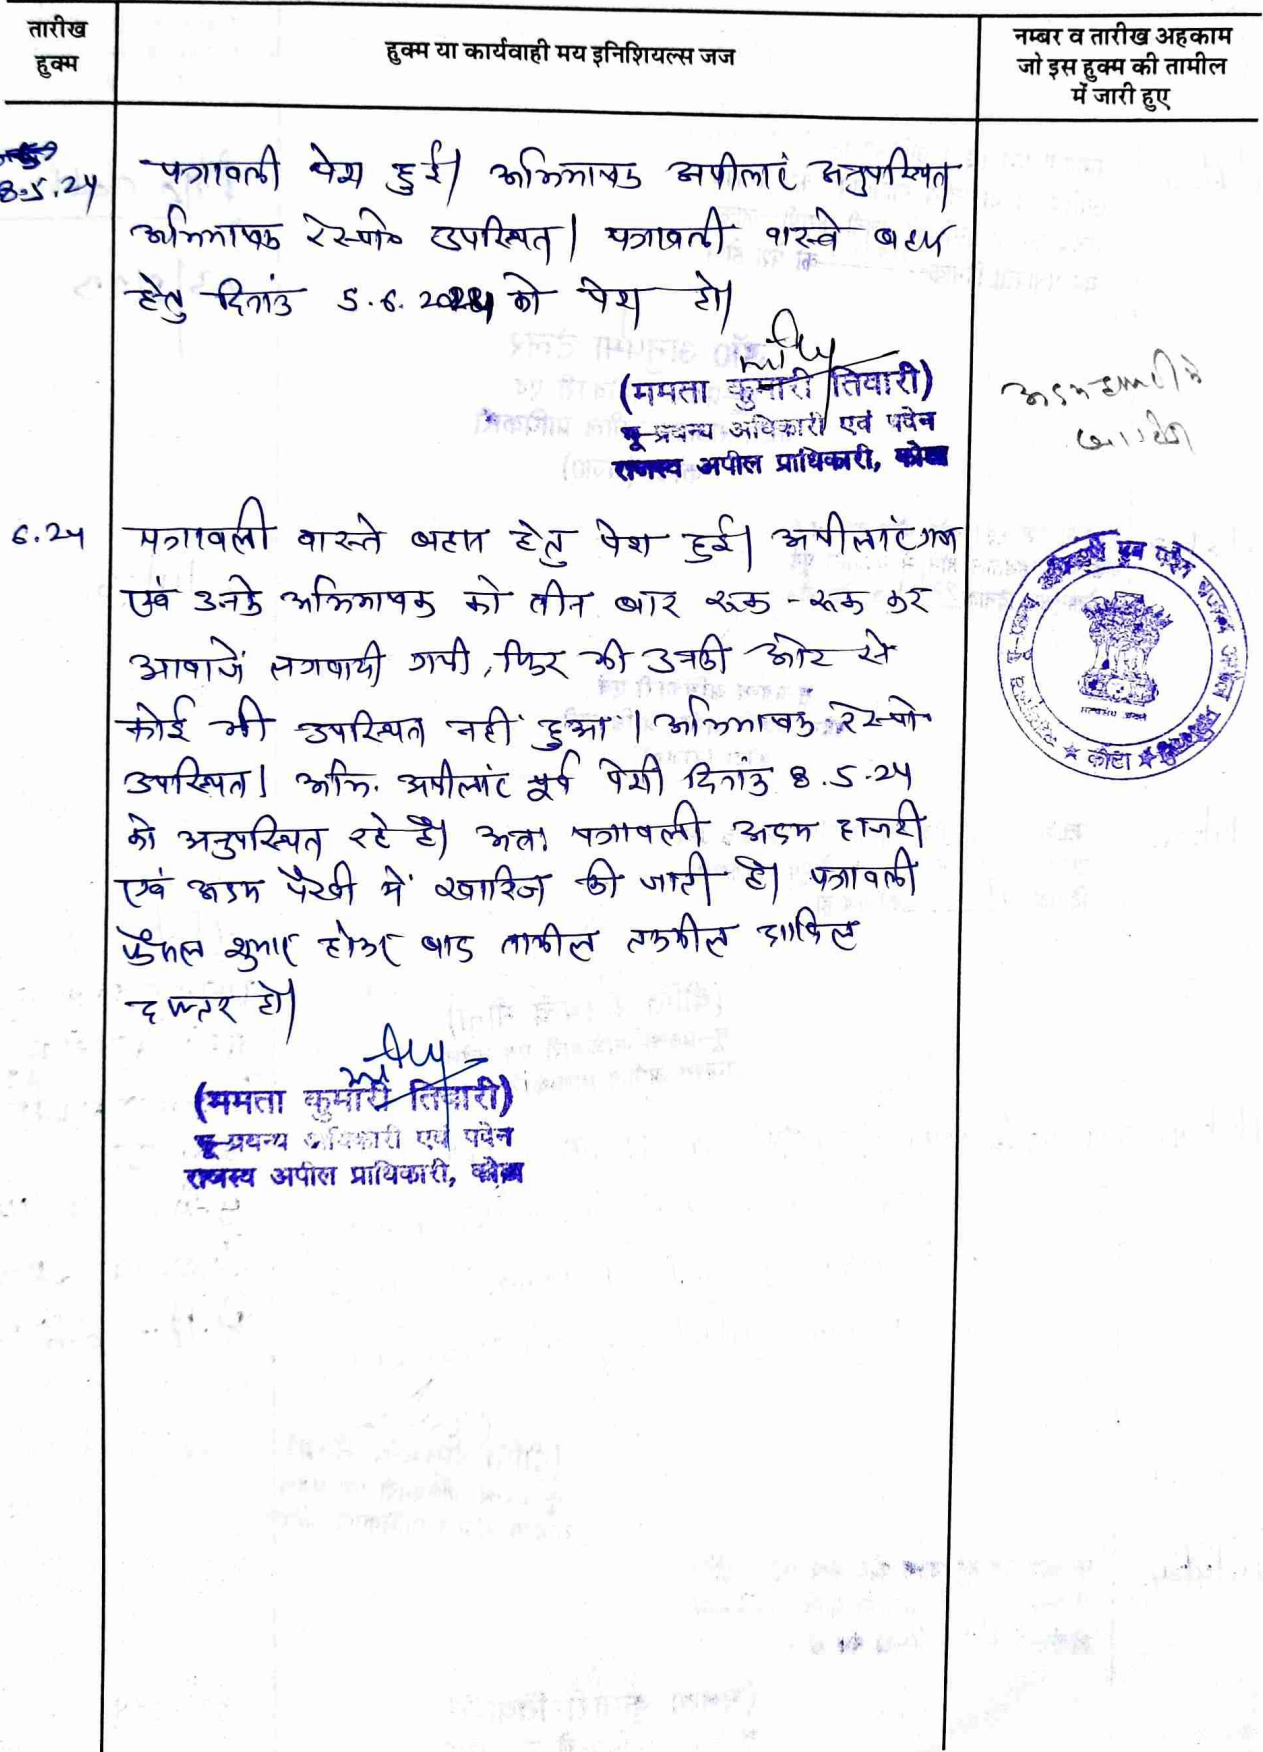 तारीख
हुक्म
हुक्म या कार्यवाही मय इनिशियल्स जज
नम्बर व तारीख अहकाम
जो इस हुक्म की तामील
में जारी हुए
8.5.24
पत्रावली पेश हुई। अभिभाषक अपीलांट अनुपस्थित
अभिभाषक रेस्पो० उपस्थित। पत्रावली वास्ते बहस
हेतु दिनांक 5.6.2024 को पेश हो।
(ममता कुमारी तिवारी)
भू-प्रबन्ध अधिकारी एवं पदेन
राजस्व अपील प्राधिकारी, कोटा
अदम हाजरी में
6.24
पत्रावली वास्ते बहस हेतु पेश हुई। अपीलांटगण
एवं उनके अभिभाषक को तीन बार रूक-रूक कर
आवाजें लगवायी गयी, फिर भी उनकी ओर से
कोई भी उपस्थित नहीं हुआ। अभिभाषक रेस्पो०
उपस्थित। अभि. अपीलांट पूर्व पेशी दिनांक 8.5.24
को अनुपस्थित रहे है। अतः पत्रावली अदम हाजरी
एवं अदम पैरवी में खारिज की जाती है। पत्रावली
फैसल शुमार होकर बाद तामील तकमील दाखिल
दफ्तर हो।
कोटा
(ममता कुमारी तिवारी)
भू-प्रबन्ध अधिकारी एवं पदेन
राजस्व अपील प्राधिकारी, कोटा